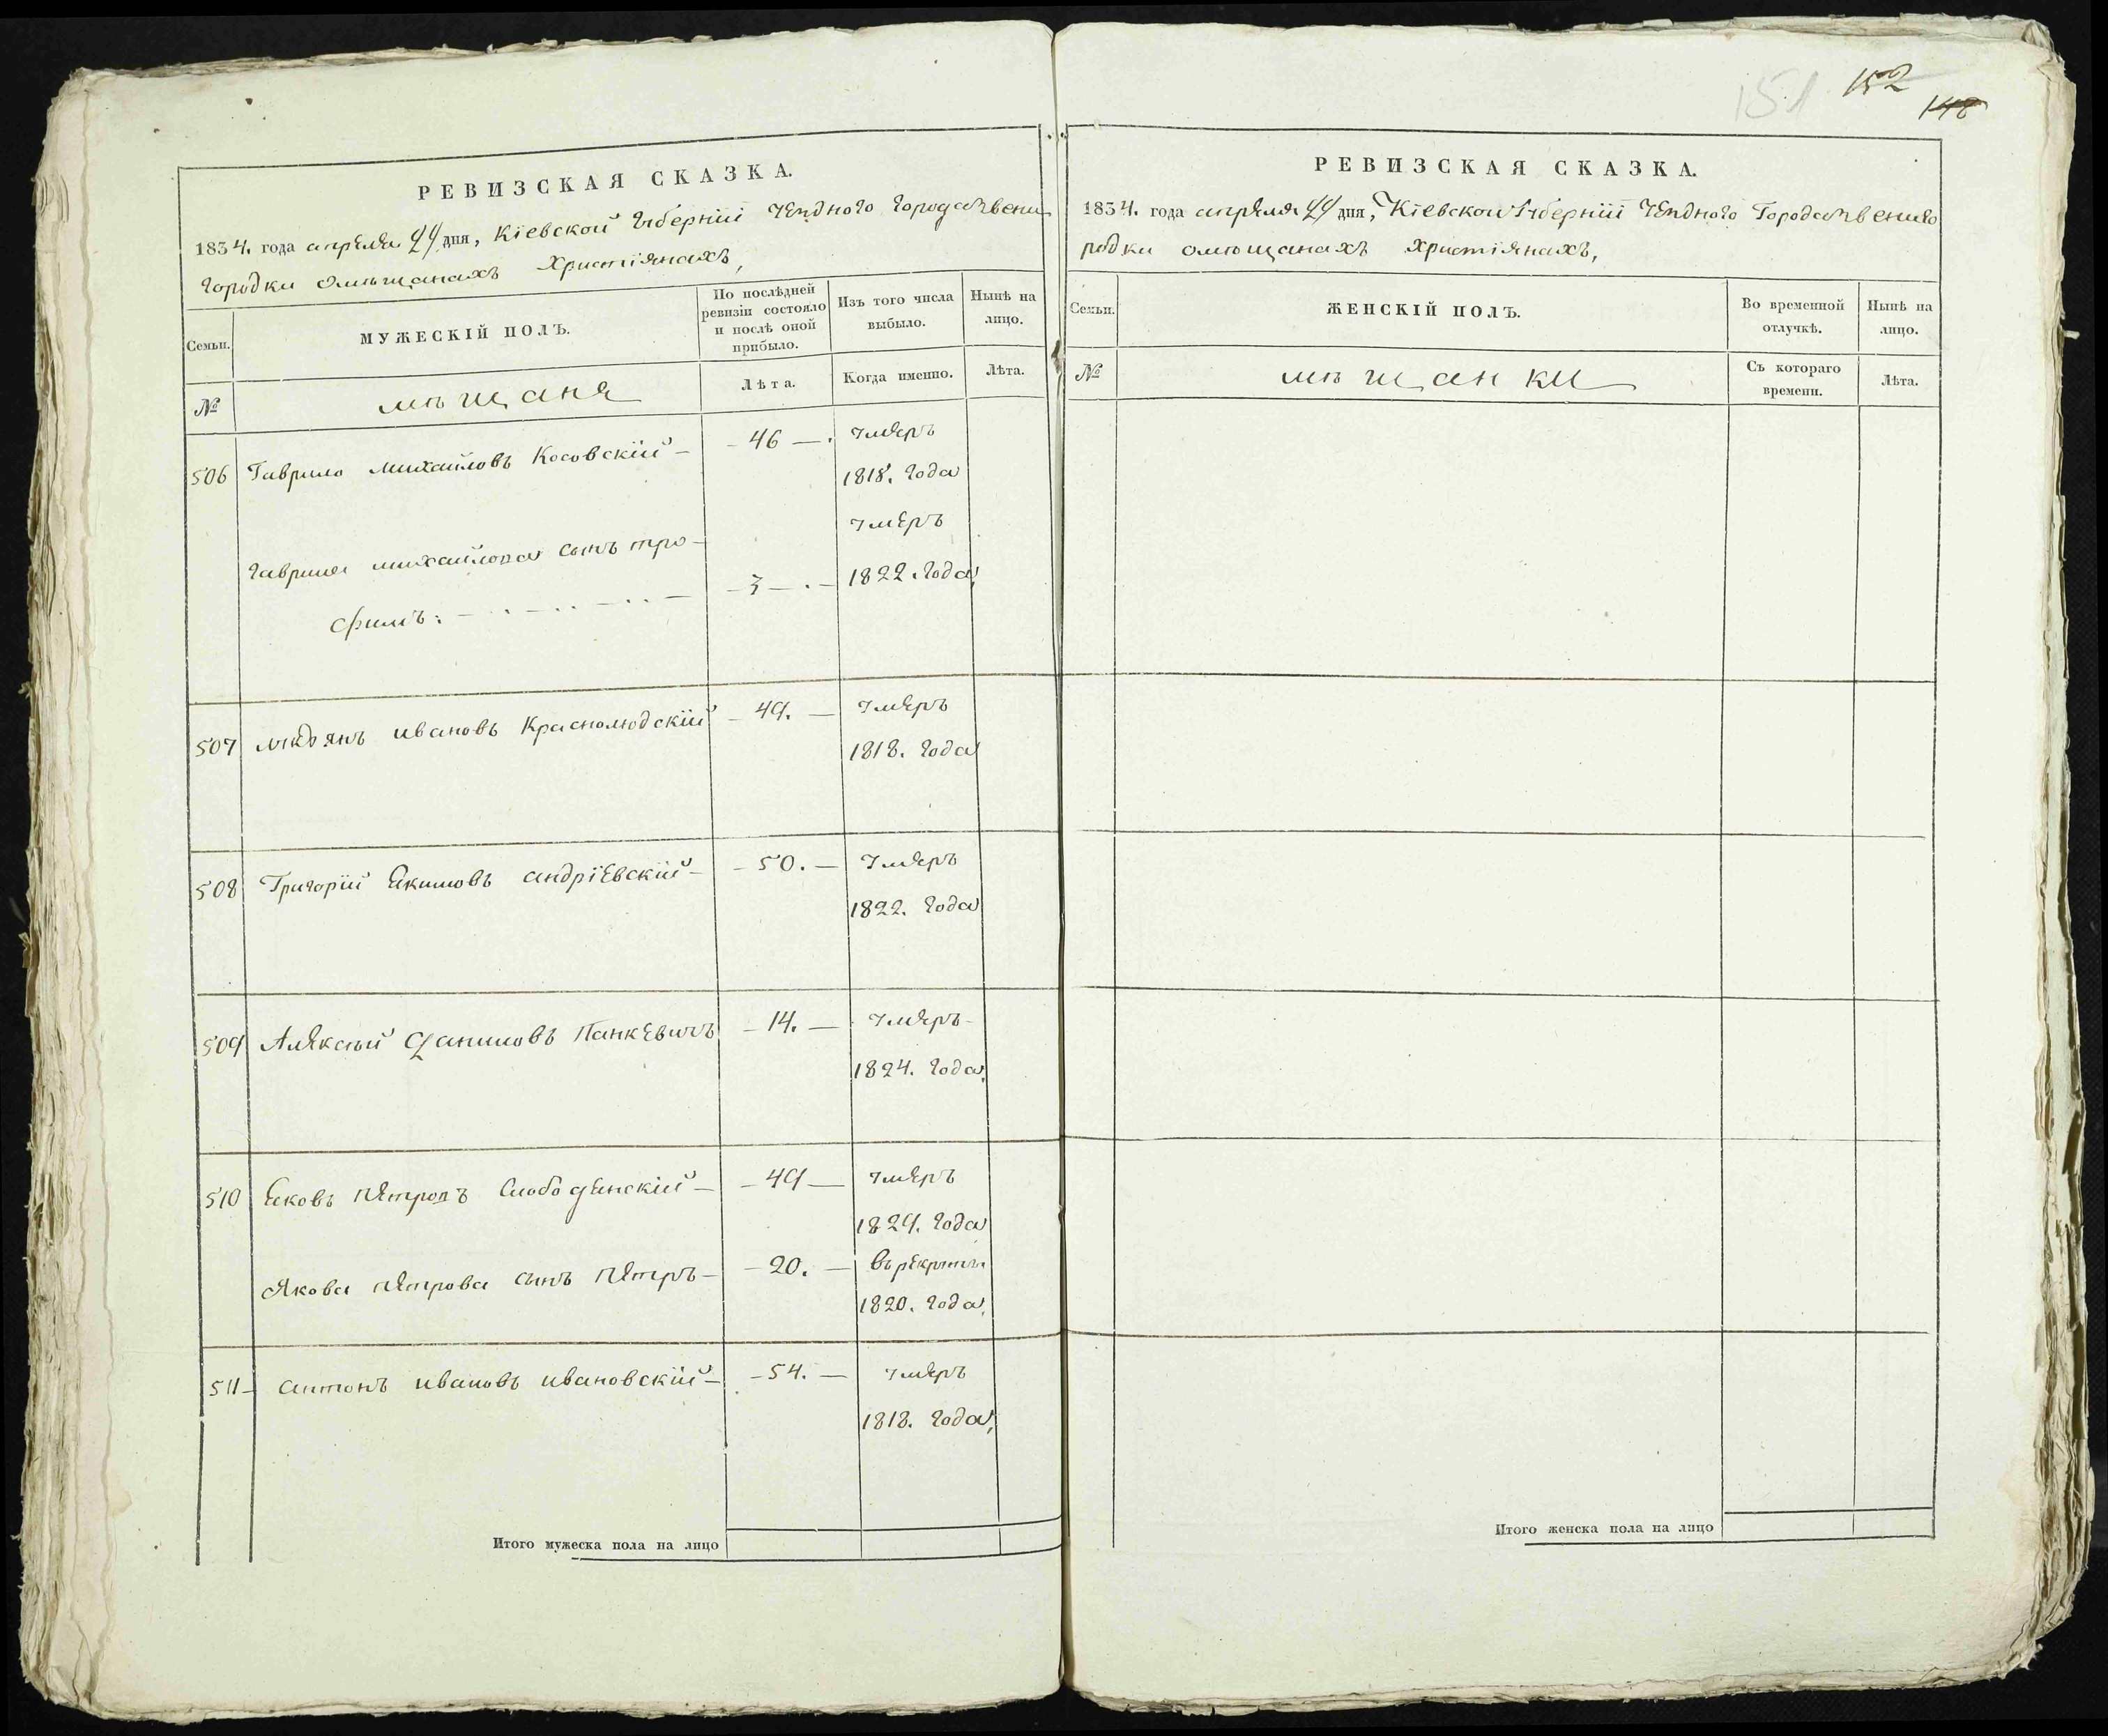 151 152
148
РЕВИЗСКАЯ СКАЗКА.
1834. года апреля 24 дня, Кіевской Губерніи Уездного Города Звени
Городки омещанахъ Христіянахъ,
Семьи.
МУЖЕСКІЙ ПОЛЪ.
По послѣдней
ревизіи состояло
и послѣ оной
прибыло.
Изъ того числа
выбыло.
Нынѣ на
лицо.
№
мещаня
Лѣта.
Когда именно.
Лѣта.
506 Гаврило михайловъ Косовскій — 46 — умеръ
1818. года
Гаврила михайлова сынъ тро-
фимъ: — 3 — умеръ
1822. года,
507 ивановъ Краснолюдскій — 49. — умеръ
1818. года
508 Григорій Екимовъ андріевскій — 50. — умеръ
1822. года
509 Алексей Даниловъ Панкевичъ — 14. — умеръ
1824. года,
510 Яковъ петровъ Слободенскій — 49 — умеръ
1824. года
Якова петрова сынъ петръ — 20. — в рекруты
1820. года,
511 — антонъ ивановъ ивановскій — 54. — умеръ
1818. года,
Итого мужеска пола на лицо
РЕВИЗСКАЯ СКАЗКА.
1834. года апреля 24 дня, Кіевской Губерніи Уездного Города Звениго
родки омещанахъ христіянахъ,
Семьи.
ЖЕНСКІЙ ПОЛЪ.
Во временной
отлучкѣ.
Нынѣ на
лицо.
№
мещанки
Съ котораго
времени.
Лѣта.
Итого женска пола на лицо